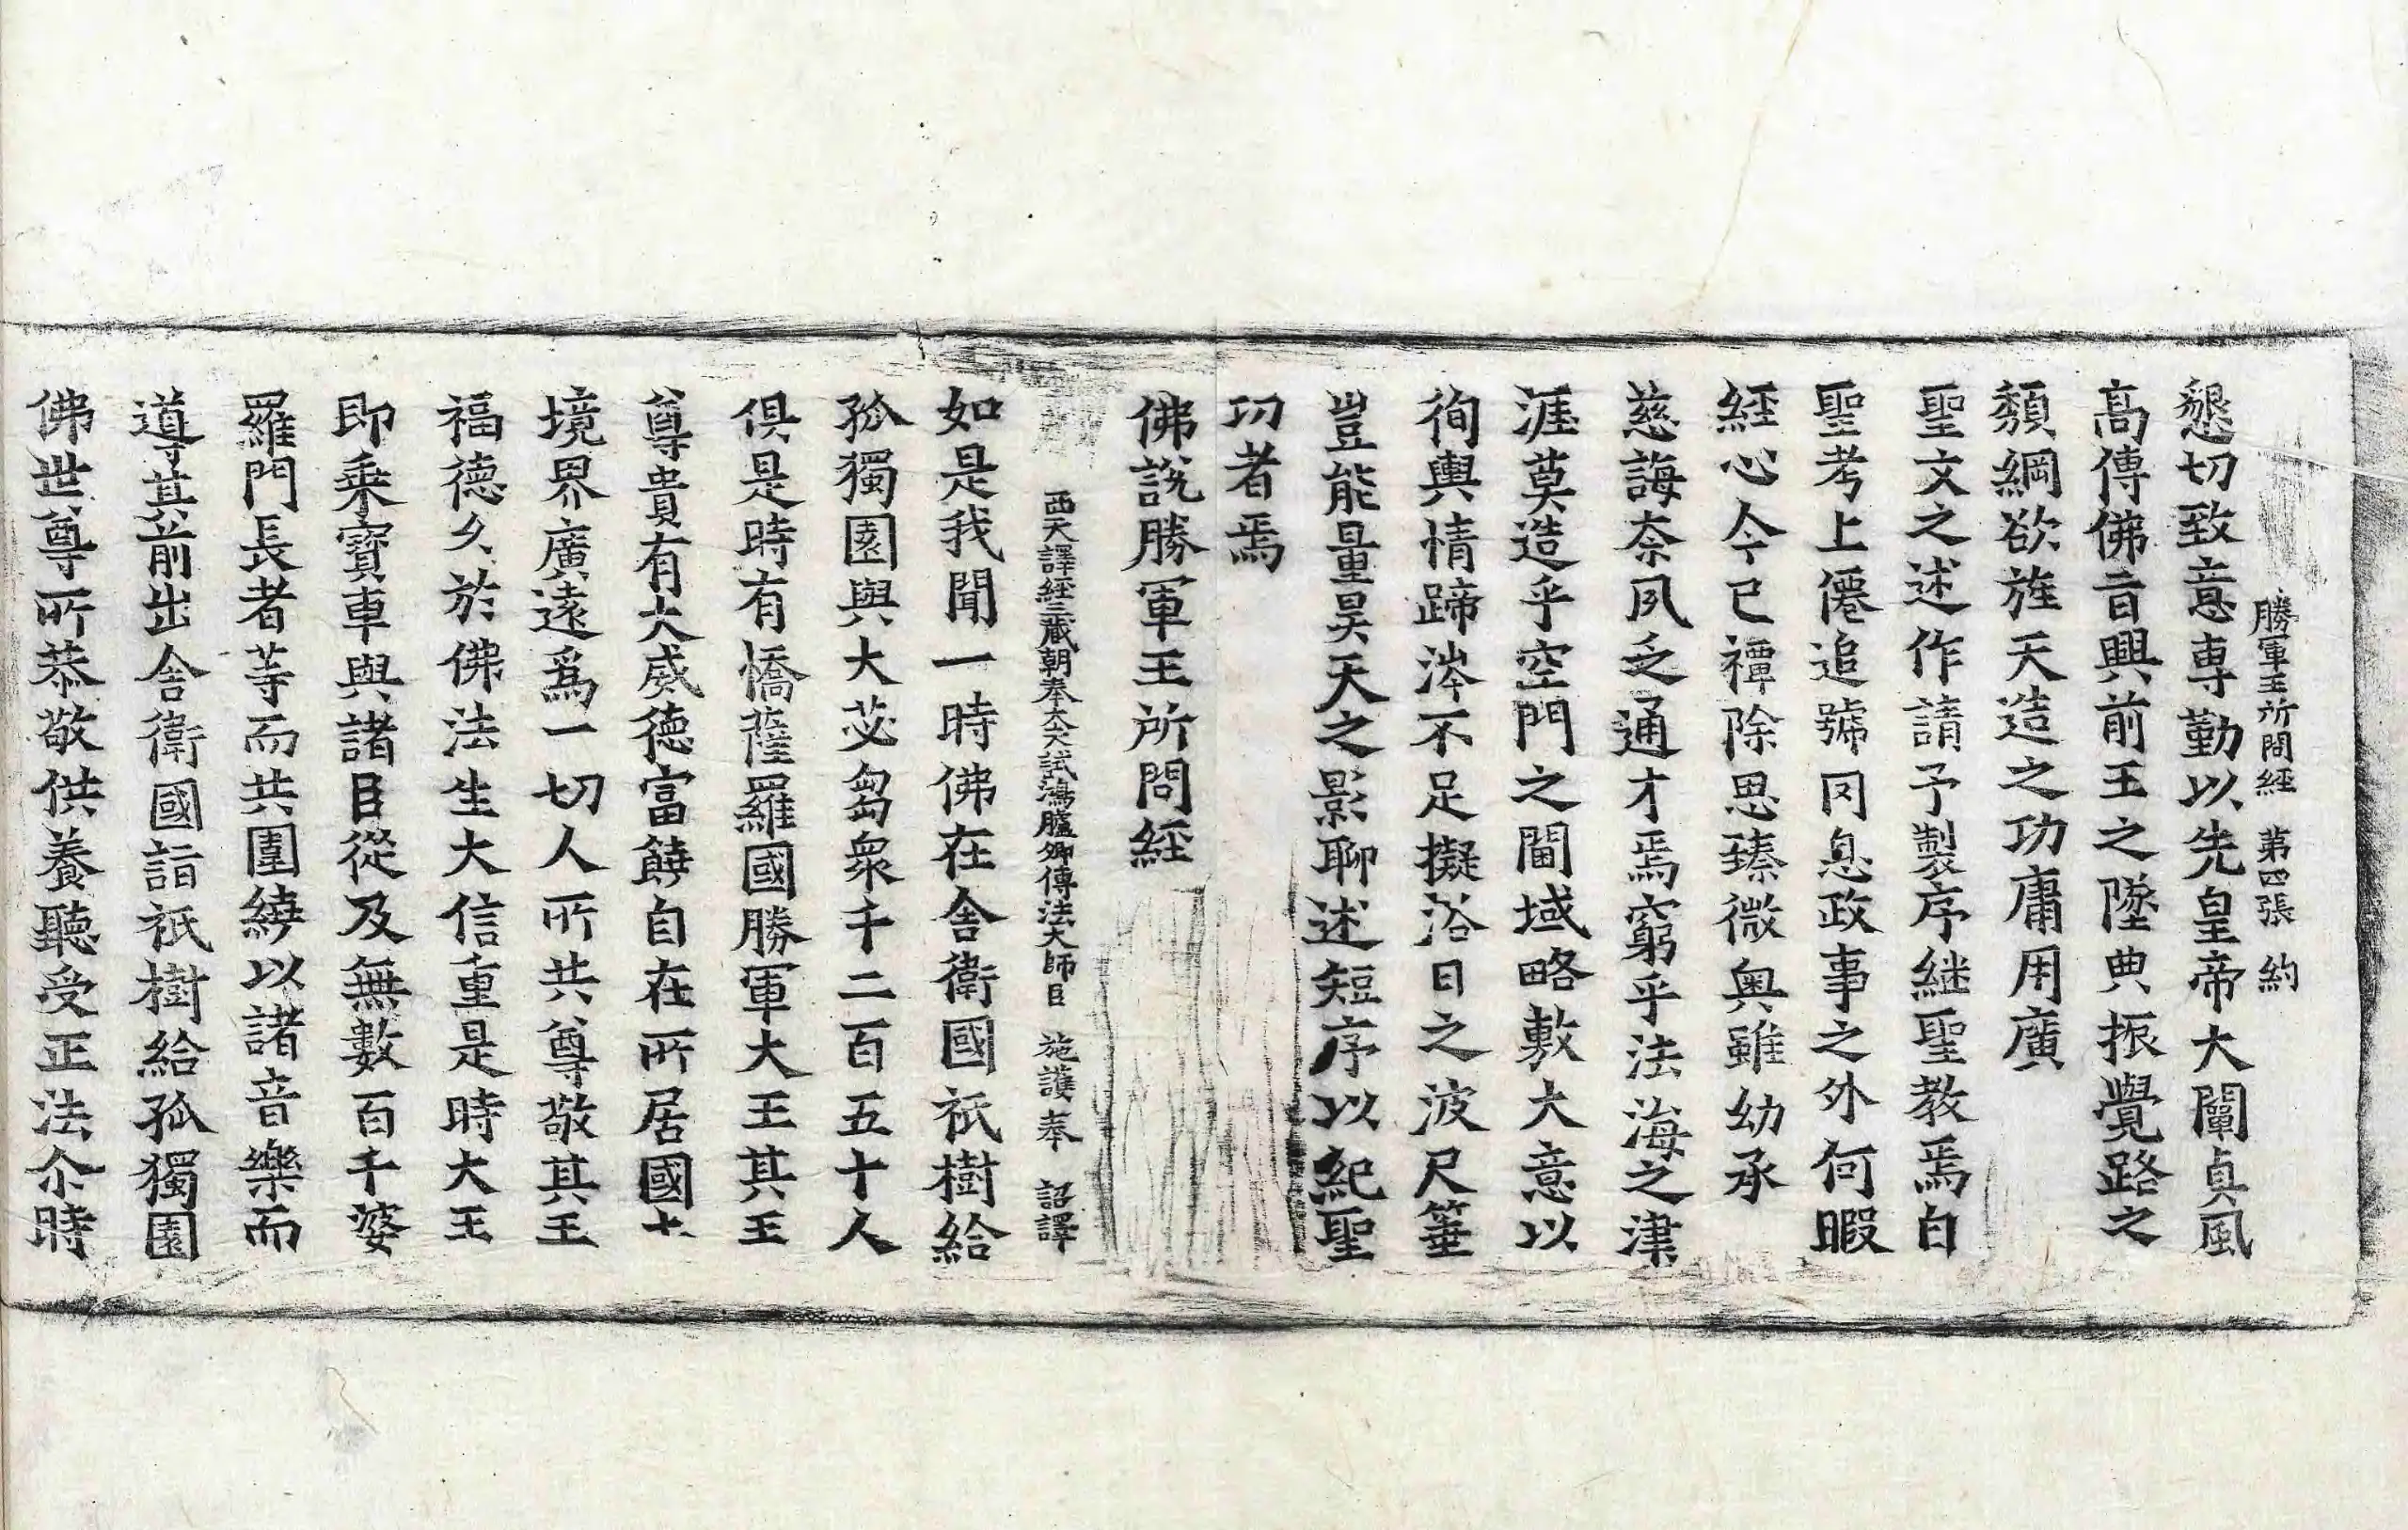 勝軍王所問經 第四張 約
懇切致意專勤以先皇帝大闡真風
高傳佛音興前王之墜典振覺路之
頹綱欲旌天造之功庸用廣
聖文之述作請予製序継聖教焉白
聖考上僊追號罔息政事之外何暇
經心今已禫除思臻微奥雖幼承
慈誨柰夙乏通才焉窮乎法海之津
涯莫造乎空門之閫域略敷大意以
徇輿情蹄涔不足擬浴日之波尺箠
豈能量昊天之影聊述短序以紀聖
功者焉
佛說勝軍王所問經
西天譯經三藏朝奉大夫試鴻臚卿傳法大師臣 施護奉 詔譯
如是我聞一時佛在舍衛國祇樹給
孤獨園與大苾芻衆千二百五十人
俱是時有憍薩羅國勝軍大王其王
尊貴有大威德富饒自在所居國土
境界廣遠爲一切人所共尊敬其王
福德久於佛法生大信重是時大王
即乗寶車與諸臣從及無數百千婆
羅門長者等而共圍繞以諸音樂而
導其前出舍衛國詣祇樹給孤獨園
佛世尊所恭敬供養聽受正法尒時